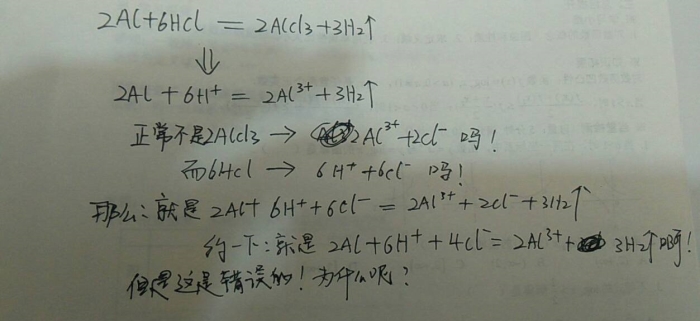 2Al+6HCl = 2AlCl3+3H2↑
⇓
2Al + 6H⁺ = 2Al³⁺+3H2↑
正常不是2AlCl3 → 2Al³⁺+2Cl⁻ 吗!
而6HCl → 6H⁺+6Cl⁻ 吗!
那么:就是 2Al+ 6H⁺+6Cl⁻ = 2Al³⁺+2Cl⁻+3H2↑
约一下:就是 2Al+6H⁺+4Cl⁻= 2Al³⁺+ 3H2↑啊!
但是这是错误的!为什么呢?